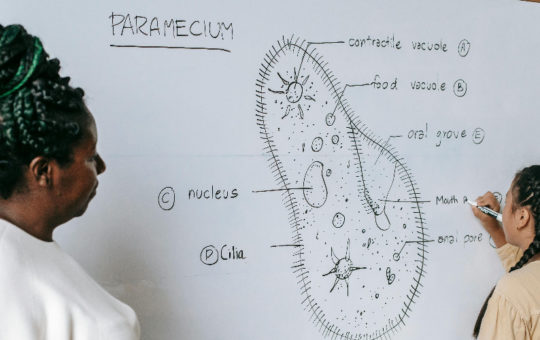 PARAMECIUM
contractile vacuole (A)
food vacuole (B)
oral grove (E)
(C) nucleus
Mouth
(D) Cilia
anal pore